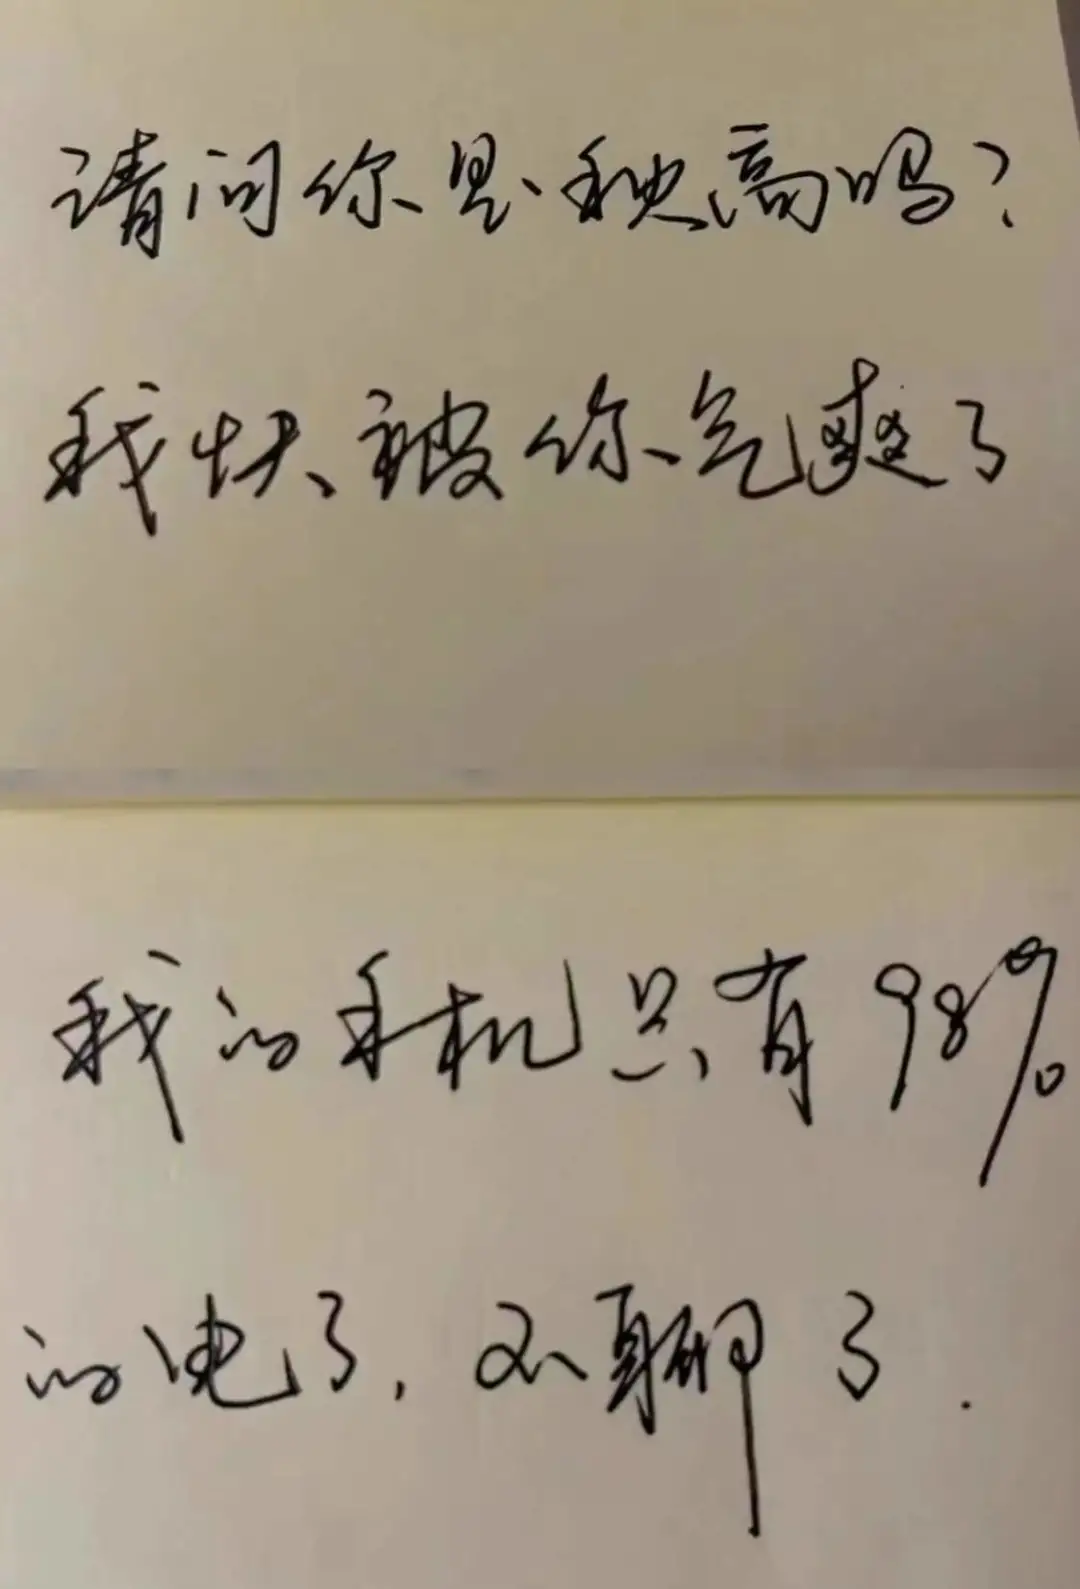 请问你是秋高吗？
我快被你气爽了
我的手机只有98%
的电了，不聊了.